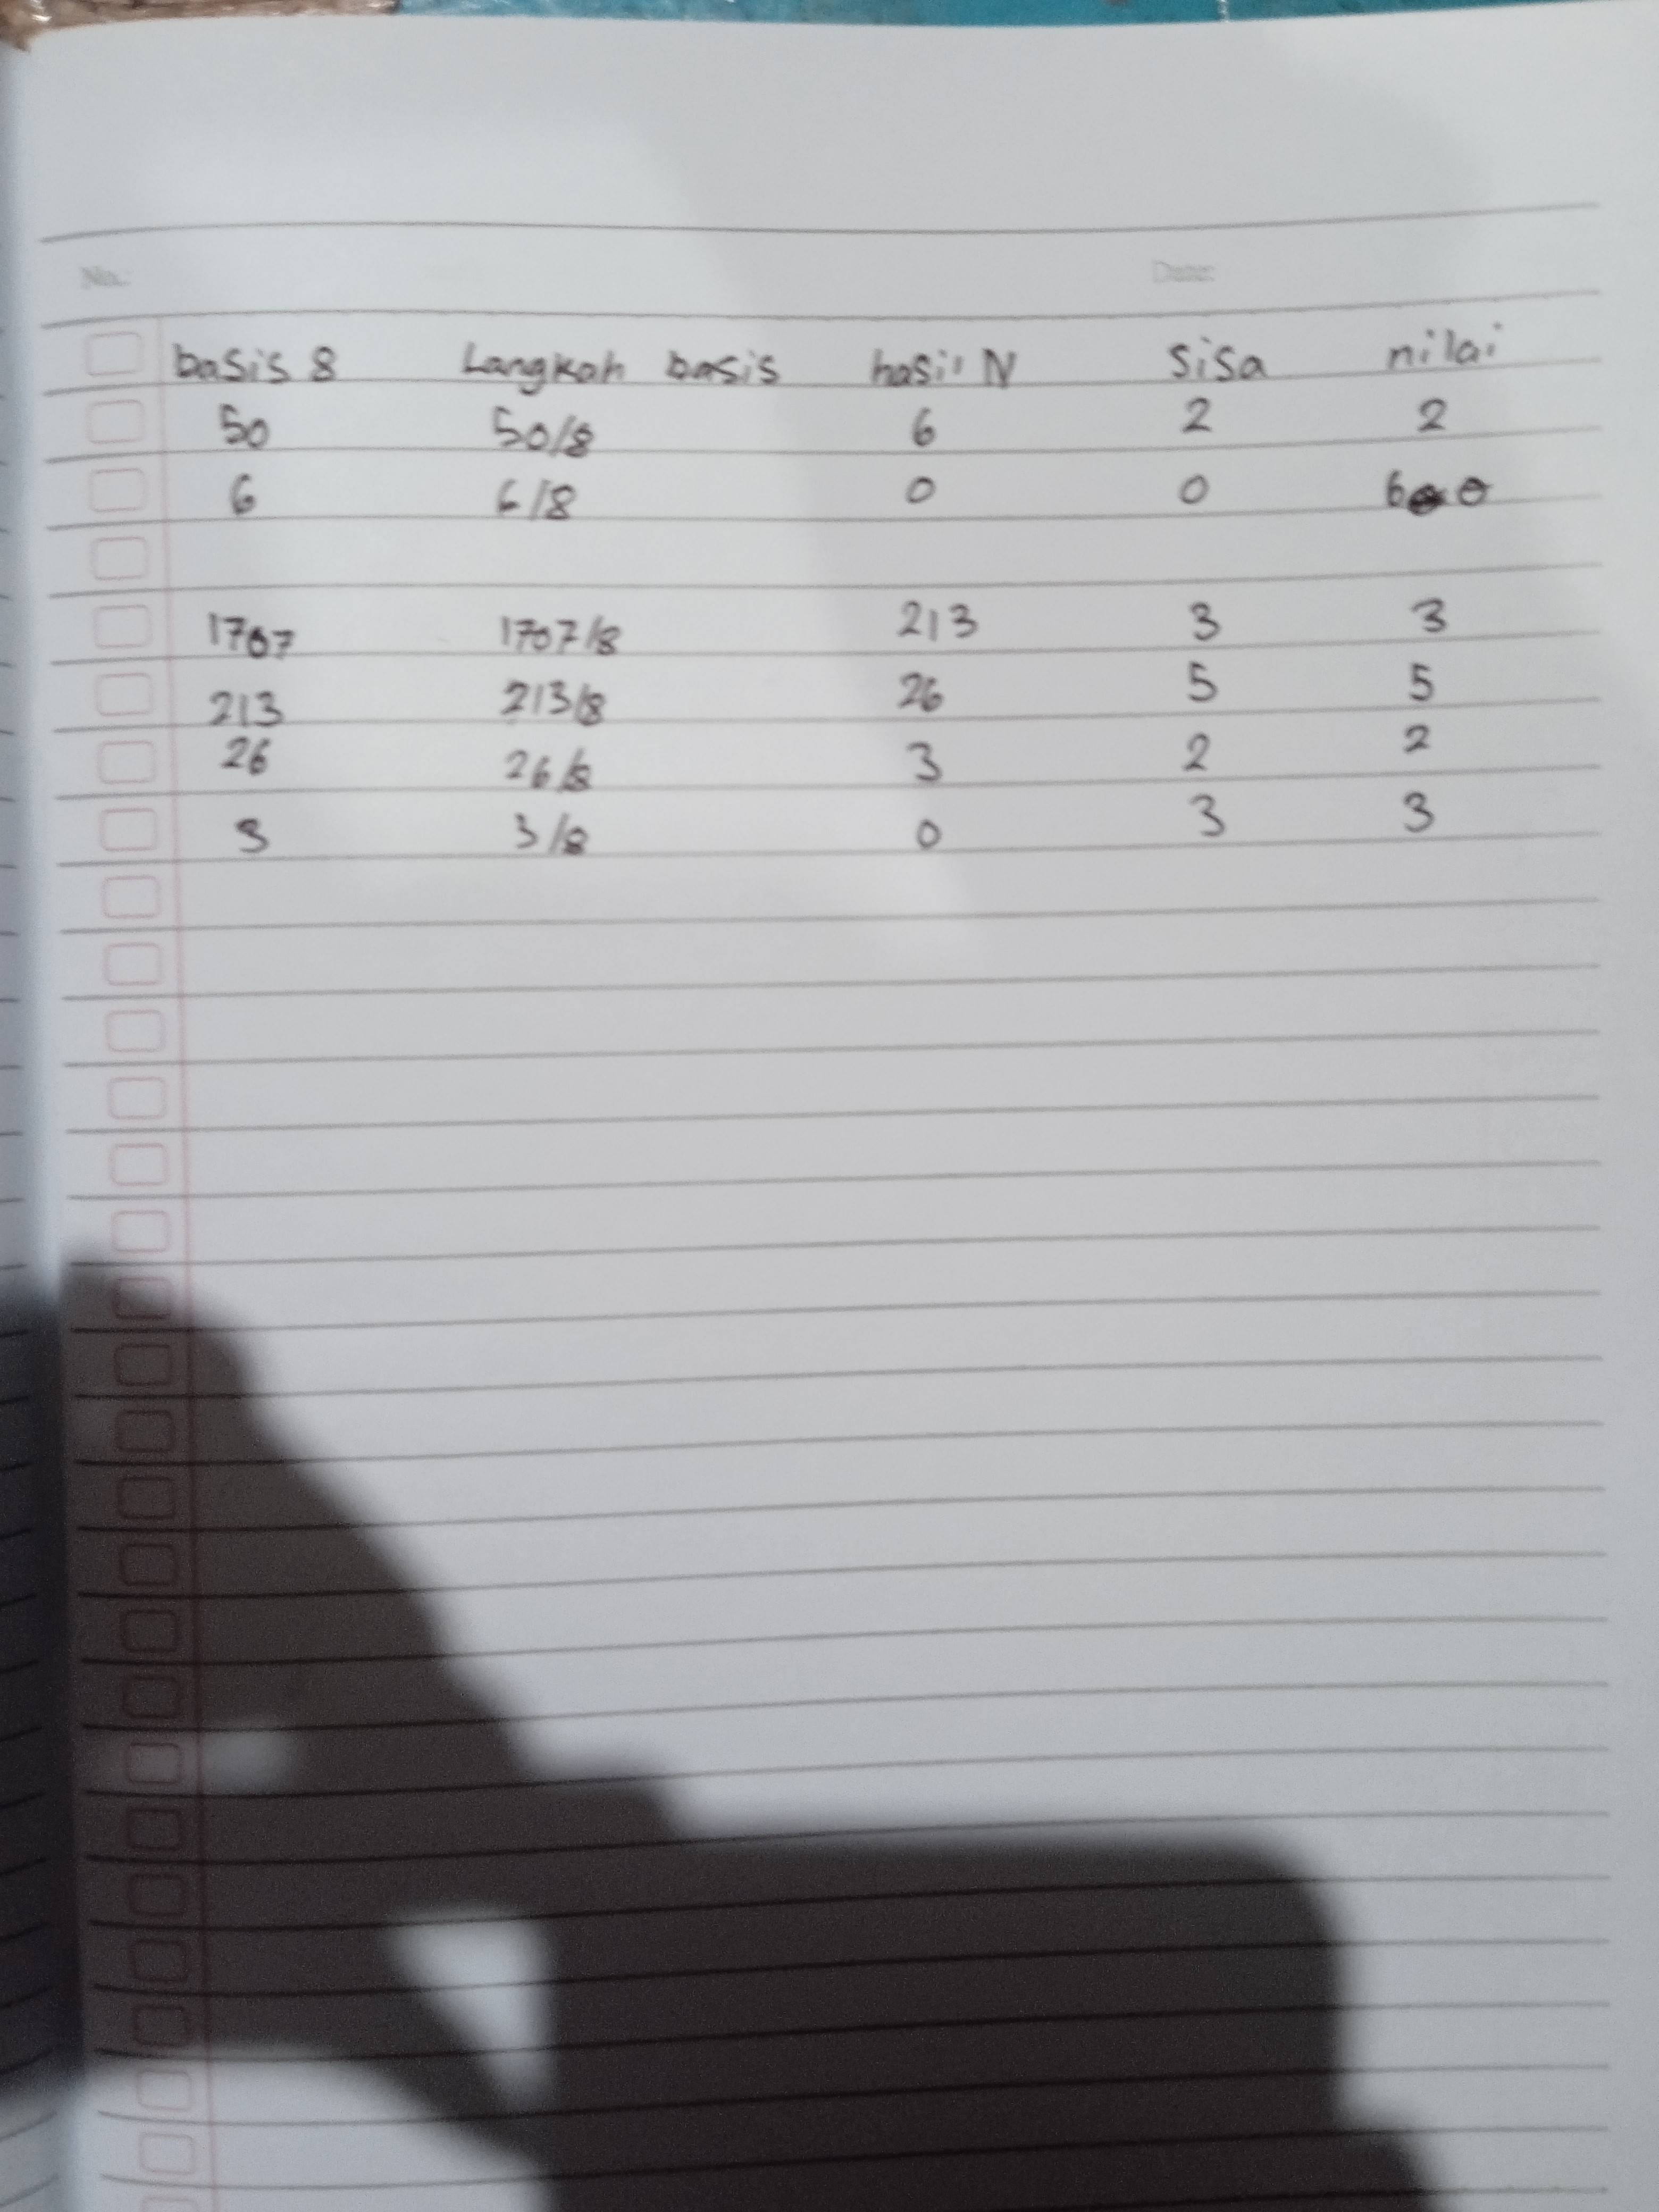 No.: Date:
basis 8 Langkah basis hasil N sisa nilai
50 50/8 6 2 2
6 6/8 0 0 6 0
1707 1707/8 213 3 3
213 213/8 26 5 5
26 26/8 3 2 2
3 3/8 0 3 3